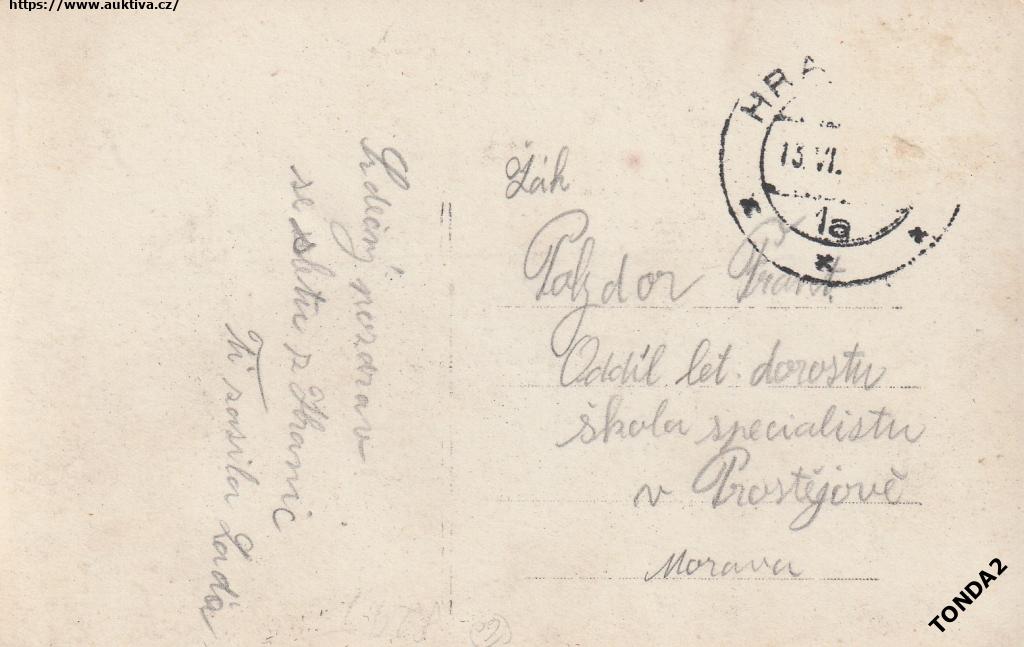 https://www.auktiva.cz/
HRA
13.VI.
1a
Srdečný pozdrav
se sletu z Hranic
Ti zasílá Láda
Žák
Frant.
Oddíl let. dorostu
škola specialistu
v Prostějově
Morava
TONDA2